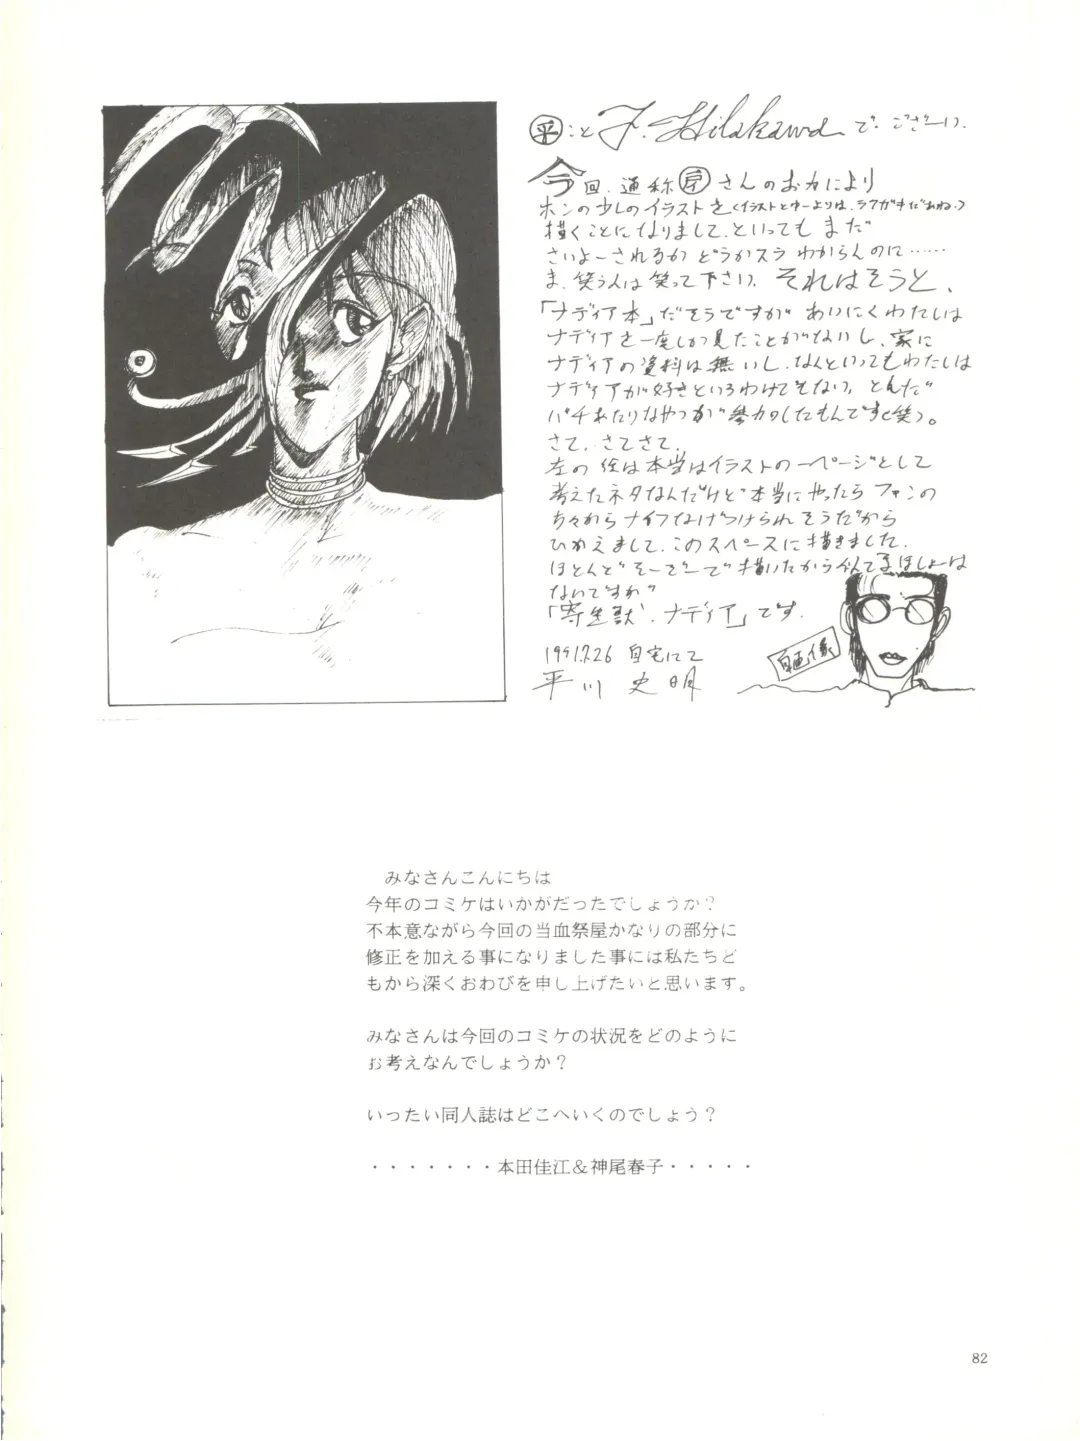 ㊥こと F. Hilakawa で ございい.
今回、通称 さんのお力により
ホンの少しのイラストを(イラストとゆーよりは、ラクガキだあね.)
描くことになりまして、といっても まだ
さいよーされるか どうかスラ わからんのに……
ま、笑う人は 笑って下さい。それはそうと、
「ナディア本」だそうですが あいにくわたしは
ナディアを一度しか見たことがないし、家に
ナディアの資料は無いし、なんといってもわたしは
ナディアが好きというわけでもない。とんだ
バチあたりなやつが参加したもんです(笑)。
さて、さてさて、
左の絵は本当はイラストの一ページとして
考えたネタなんだけど本当にやったらファンの
方々からナイフなげつけられそうだから
ひかえまして、このスペースに描きました.
ほとんどそーぞーで描いたから似てませんしょーは
ないですか
「寄生獣・ナディア」です.
自画像
1991.7.26 自宅にて
平川史明
みなさんこんにちは
今年のコミケはいかがだったでしょうか?
不本意ながら今回の当血祭屋かなりの部分に
修正を加える事になりました事には私たちど
もから深くおわびを申し上げたいと思います。
みなさんは今回のコミケの状況をどのように
お考えなんでしょうか?
いったい同人誌はどこへいくのでしょう?
・・・・・・・本田佳江&神尾春子・・・・・
82